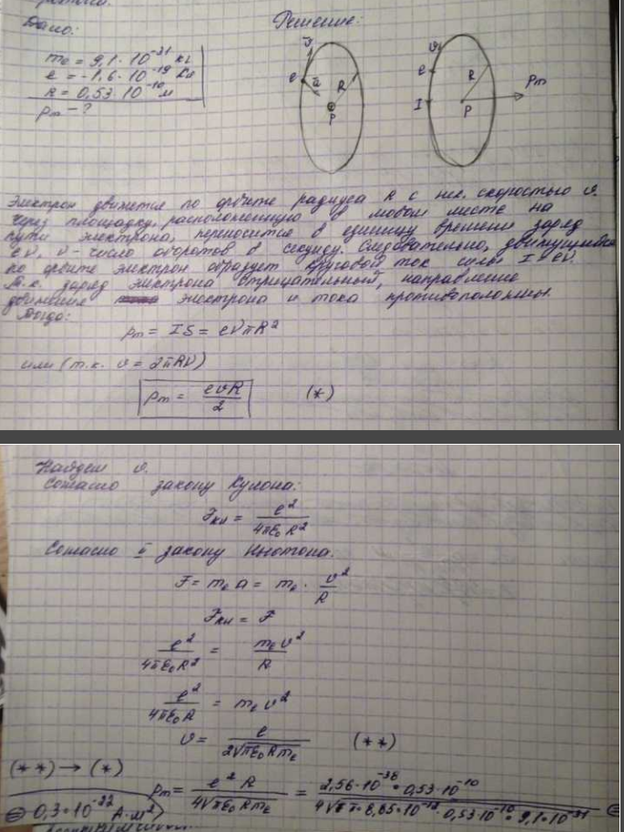 Дано:
Решение:
mₑ = 9,1 · 10⁻³¹ кг
e = -1,6 · 10⁻¹⁹ Кл
R = 0,53 · 10⁻¹⁰ м
pₘ - ?
υ
e
R
P
υ
e
I
R
P
Pₘ
Электрон движется по орбите радиуса R с нек. скоростью υ.
Через площадку, расположенную в любом месте на
пути электрона, переносится в единицу времени заряд
eν, ν - число оборотов в секунду. Следовательно, движущийся
по орбите электрон образует круговой ток силы I = eν.
Т.к. заряд электрона отрицательный, направление
движения электрона и тока противоположны.
Тогда:
pₘ = IS = eνπR²
или (т.к. υ = 2πRν)
pₘ = eυR / 2 (*)
Найдем υ.
Согласно закону Кулона:
Fкл = e² / 4πε₀R²
Согласно II закону Ньютона.
F = mₑ a = mₑ · υ² / R
Fкл = F
e² / 4πε₀R² = mₑυ² / R
e² / 4πε₀R = mₑυ²
υ = e / 2√πε₀Rmₑ (**)
(**) → (*)
pₘ = e² R / 4√πε₀Rmₑ = 2,56·10⁻³⁸ · 0,53·10⁻¹⁰ / 4√π · 8,85·10⁻¹² · 0,53·10⁻¹⁰ · 9,1·10⁻³¹ =
= 0,3·10⁻²² А·м²